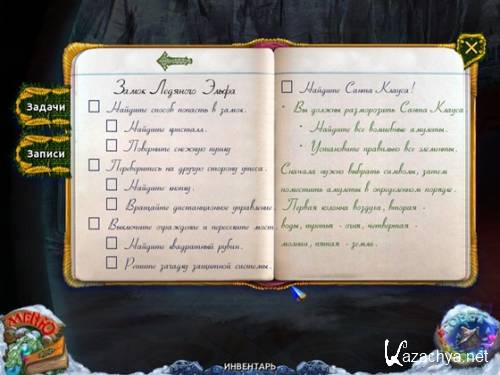 Задачи
Записи
Замок Ледяного Эльфа
Найдите способ попасть в замок.
Найдите кристалл.
Поверните снежную пушку
Переберитесь на другую сторону утеса.
Найдите
Вращайте дистанционное управление.
Выключите ограждение и пересеките мост.
Найдите квадратный рубин.
Решите загадку защитной системы.
Найдите Санта Клауса!
• Вы должны разморозить Санта Клауса
• Найдите все волшебные амулеты.
• Установите правильно все элементы.
Сначала нужно выбрать символы, затем
поместить амулеты в определенном порядке.
Первая колонна воздуха, вторая -
воды, третья - огня, четвертая -
молнии, пятая - земли.
МЕНЮ
СОВЕТ
ИНВЕНТАРЬ
Kazachya.net